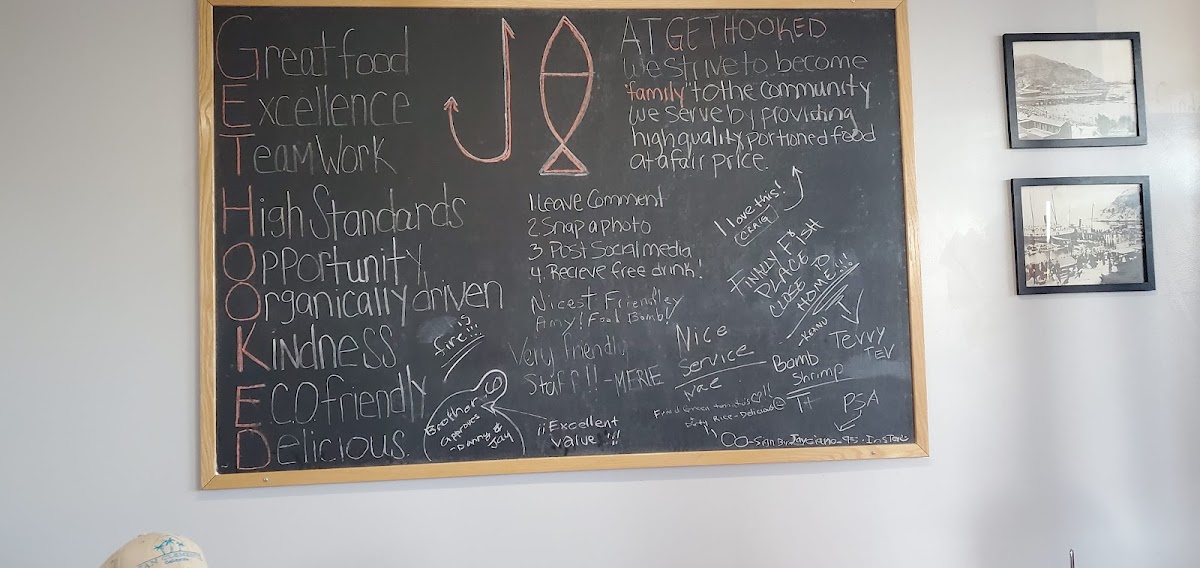 Great food
Excellence
TeamWork
High Standards
Opportunity
Organically driven
Kindness
ECO friendly
Delicious.
AT GET HOOKED
We strive to become
"family" to the community
we serve by providing
high quality portioned food
at a fair price.
1. Leave Comment
2. Snap a photo
3. Post Social media
4. Recieve free drink!
I love this!
CRAIG
FINALLY FISH
PLACE
CLOSE TO
HOME!!!
-KEANU
Nicest Friendley
Amy! Food Bomb!
is
fire!!!
Very friendly
Staff!! -MERIE
Nice
Service
Brother
approves
-Danny &
Jay
¡¡Excellent
value!!!
Tevvy
TEV
Bomb
Shrimp
Dirty Rice-Delicious
PSA